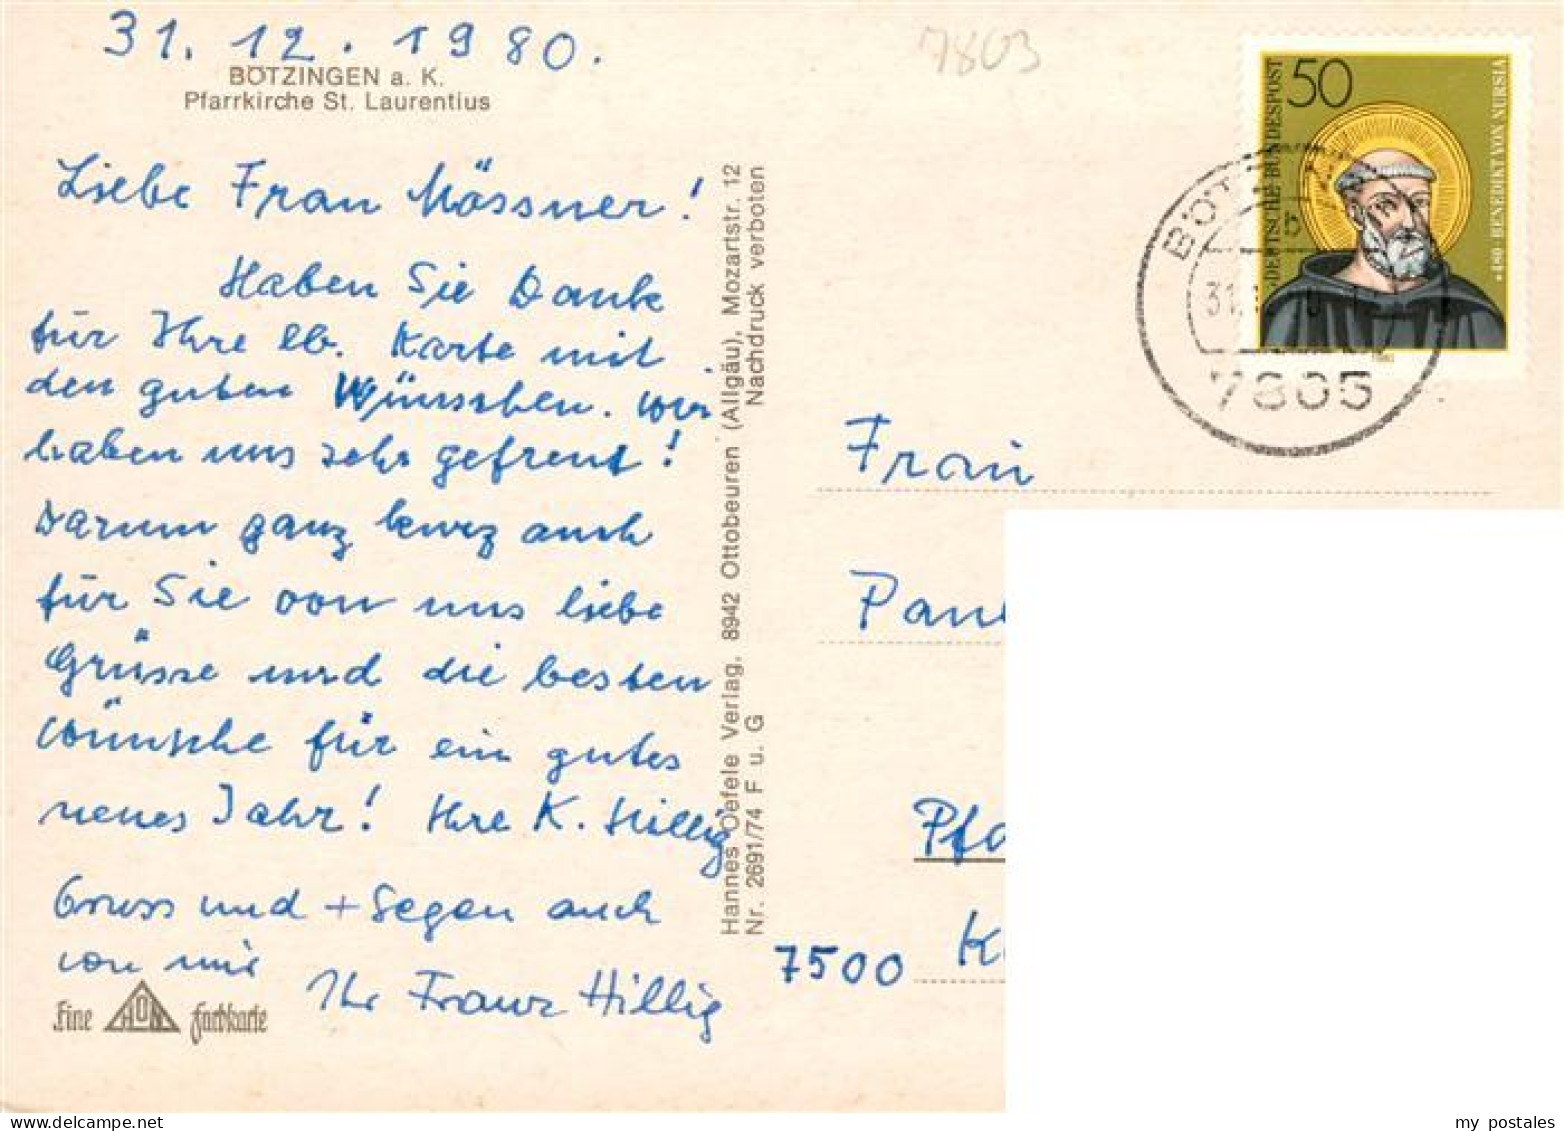 31. 12. 1980.
BÖTZINGEN a. K.
Pfarrkirche St. Laurentius
Liebe Frau Mössner!
Haben Sie Dank
für Ihre lb. Karte mit
den guten Wünschen. Wir
haben uns sehr gefreut!
Darum ganz kurz auch
für Sie von uns liebe
Grüsse und die besten
Wünsche für ein gutes
neues Jahr! Ihre K. Hillig
Gruss und + Segen auch
von mir
Ihr Franz Hillig
Eine AON Farbkarte
Hannes Oefele Verlag, 8942 Ottobeuren (Allgäu), Mozartstr. 12
Nr. 2691/74 F u. G Nachdruck verboten
7803
50
DEUTSCHE BUNDESPOST
* 480 · BENEDIKT VON NURSIA
BÖT
b
31.1
7805
Frau
Pau
Pfa
7500 Ka
my postales